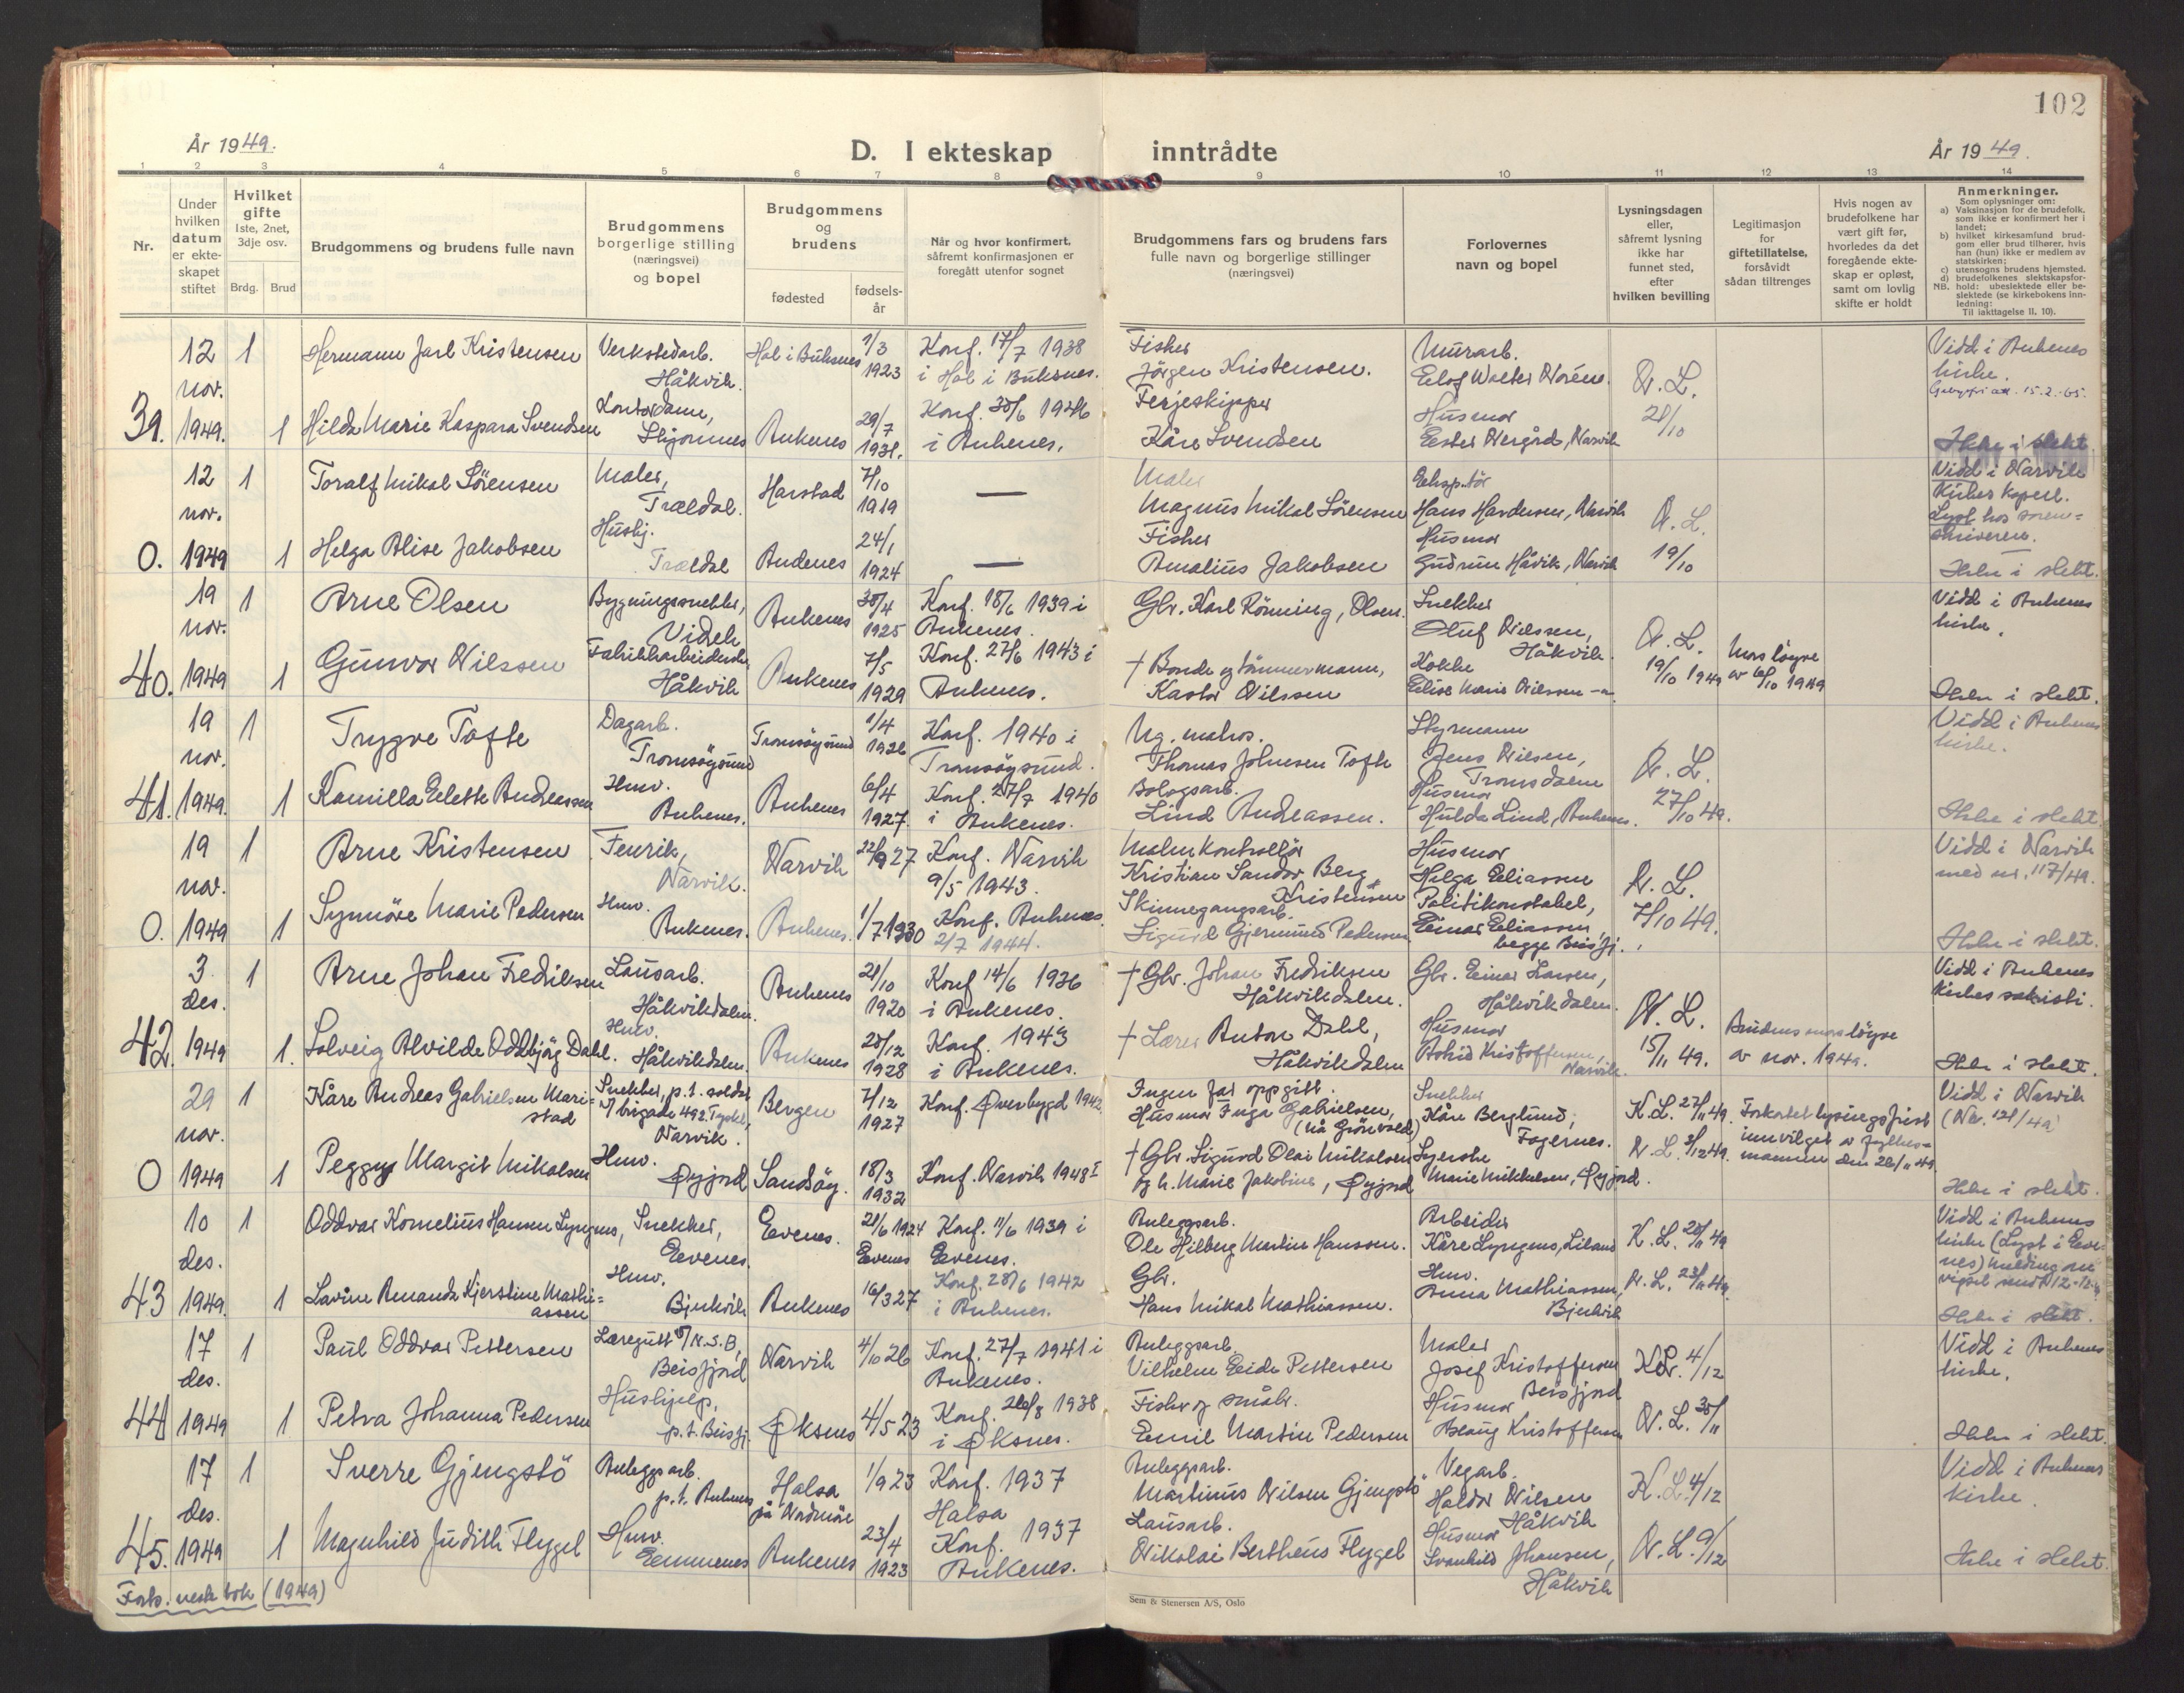 102
År 1949.
D. I ekteskap inntrådte
År 1949.
1 2 3 4 5 6 7 8 9 10 11 12 13 14
Nr.
Under hvilken datum er ekteskapet stiftet
Hvilket gifte
1ste, 2net, 3dje osv.
Brdg. Brud
Brudgommens og brudens fulle navn
Brudgommens borgerlige stilling (næringsvei) og bopel
Brudgommens og brudens
fødested
fødsels-år
Når og hvor konfirmert,
såfremt konfirmasjonen er
foregått utenfor sognet
Brudgommens fars og brudens fars
fulle navn og borgerlige stillinger
(næringsvei)
Forlovernes
navn og bopel
Lysningsdagen
eller,
såfremt lysning
ikke har
funnet sted,
efter
hvilken bevilling
Legitimasjon
for
giftetillatelse,
forsåvidt
sådan tiltrenges
Hvis nogen av
brudefolkene har
vært gift før,
hvorledes da det
foregående ekte-
skap er opløst,
samt om lovlig
skifte er holdt
Anmerkninger.
Som oplysninger om:
a) Vaksinasjon for de brudefolk.
som ikke er konfirmert her i
landet;
b) hvilket kirkesamfund brud-
gom eller brud tilhører, hvis
han (hun) ikke er medlem av
statskirken;
c) utensogns brudens hjemsted.
d) brudefolkenes slektskapsfor-
hold: ubeslektede eller be-
NB. slektede (se kirkebokens inn-
ledning:
Til iakttagelse II, 10).
39. 12 nov. 1949.
1 Hermann Jarl Kristensen
Verkstedarb. Håkvik.
Hol i Buksnes
1/3 1923
Konf. 17/7 1938
i Hol i Buksnes.
Fisker
Jörgen Kristensen.
Murarb.
N. L.
21/10
Vidd i Ankenes
kirke.
1 Hilda Marie Kaspara Svendsen
Kontordame,
Skjomnes
Ankenes
29/7 1931.
Konf. 30/6 1946
i Ankenes.
Ferjeskipper
Kåre Svendsen
Husmor
Ester Nergård, Narvik
Ikke i slekt
0. 12 nov. 1949
1 Toralf Mikal Sörensen
Maler,
Trældal.
Harstad
7/10 1919
—
Maler
Magnus Mikal Sörensen
N. L.
19/10
Vidd i Narvik
Kirkes kapell.
Lyst hos soren=
skriveren.
1 Helga Alise Jakobsen
Hushj.
Trældal
Andenes
24/1 1924
—
Fisker
Amalius Jakobsen
Husmor
Gudrun Håvik, Narvik
Ikke i slekt.
40. 19 nov. 1949
1 Arne Olsen
Bygningssnekker,
Videk
Ankenes
30/4 1925
Konf. 18/6 1939 i
Ankenes.
Gbr. Karl Rönning, Olsen.
Snekker
Oluf Nilssen,
Håkvik.
N. L.
19/10 1949
Mors løyve
av 6/10 1949
Vidd i Ankenes
kirke.
1 Gunvor Nilssen
Fabrikkarbeiderske
Håkvik
Ankenes
7/5 1929
Konf. 27/6 1943 i
Ankenes.
† Bonde og tömmermann,
Kastor Nilssen
Kokke
Elise Marie Nilssen
Ikke i slekt.
41. 19 nov. 1949.
1 Trygve Tofte
Dagarb.
Tromsöysund
Tromsöysund
1/4 1926
Konf. 1940 i
Tromsöysund.
Ug. matros.
Thomas Johnsen Tofte
Styrmann
Jens Nilsen,
Tromsdalen
N. L.
27/10 49.
Vidd i Ankenes
kirke.
1 Kamilla Elette Andreassen
Hmv.
Ankenes.
Ankenes
6/4 1927.
Konf. 27/7 1940
i Ankenes.
Bologsarb.
Lind Andreassen.
Husmor
Hulda Lind, Ankenes.
Ikke i slekt
0. 19 nov. 1949
1 Arne Kristensen
Fenrik,
Narvik.
Narvik
22/9 27
Konf. Narvik
9/5 1943.
Malmkontrollör
Kristian Sandor Berg
Kristensen
Husmor
Helga Eliassen
N. L.
7/10 49.
Vidd i Narvik
med nr. 117/49.
1 Synnöve Marie Pedersen
Hmv.
Ankenes.
Ankenes.
1/7 1930
Konf. Ankenes
2/7 1944.
Skinnegangsarb.
Sigurd Gjermund Pedersen
Politikonstabel,
Einar Eliassen,
begge Beisfj.
Ikke i slekt.
42. 3. des. 1949
1 Arne Johan Fredriksen
Lausarb.
Håkvikdalen.
Ankenes
21/10 1920
Konf 14/6 1936
i Ankenes.
† Gbr. Johan Fredriksen
Håkvikdalen.
Gbr. Einar Larsen,
Håkvikdalen.
N. L.
15/11 49.
Brudens mors löyve
av nov. 1949.
Vidd i Ankenes
Kirkes sakristi.
1. Solveig Alvilde Oddbjörg Dahl.
Hmv.
Håkvikdalen.
Ankenes
28/12 1928
Konf. 1943
i Ankenes.
† Lærer Anton Dahl,
Håkvikdalen
Husmor
Astrid Kristoffersen,
Narvik.
Ikke i slekt.
0 29 nov. 1949
1 Kåre Andreas Gabrielsen Mari=
stad
Snekker, p.t. soldat
v/ brigade 492. Tyskl.,
Narvik.
Bergen
7/12 1927
Konf. Øverbygd 1942.
Ingen far oppgitt.
Husmor Inga Gabrielsen,
(nå Grönvold)
Snekker
Kåre Berglund,
Fagernes.
K. L. 27/11 49.
N. L. 3/12 49.
Forkortet lysingsfrist
innvilget av fylkes=
mannen den 26/11 49.
Vidd i Narvik
(Nr. 121/49)
1 Peggy Margit Mikalsen
Hmv.
Øyjord
Sandsöy.
18/3 1932
Konf. Narvik 1948
† Gbr. Sigurd Olai Mikalsen
og h. Marie Jakobine, Øyjord
Syerske
Marie Mikkelsen, Øyjord.
Ikke i slekt.
43 10 des. 1949.
1 Oddvar Kornelius Hansen Lyngmo,
Snekker,
Evenes.
Evenes.
21/6 1924
Evenes
Konf. 11/6 1939 i
Evenes.
Anleggsarb.
Ole Hilberg Martin Hanssen.
Arbeider
K. L. 20/11 49
N. L. 23/11 49.
Vidd i Ankenes
kirke (Lyst i Eve-
nes) melding om
vigsel sendt 12-12-49
1 Lavine Amanda Kjerstine Mathi=
assen
Hmv.
Bjerkvik
Ankenes
16/3 27
Konf. 28/6 1942
i Ankenes.
Gbr.
Hans Mikal Mathiassen.
Hmv.
Anna Mathiassen,
Bjerkvik
Ikke i slekt.
44 17 des. 1949
1 Paul Oddvar Pettersen
Læregutt v/N.S.B,
Beisfjord
Narvik
4/10 26
Konf. 27/7 1941 i
Ankenes.
Anleggsarb.
Vilhelm Eide Pettersen
Maler
Josef Kristoffersen
Beisfjord
4/12
N. L. 30/11
Vidd i Ankenes
kirke.
1 Petra Johanna Pedersen
Hushjelp,
p.t. Beisfj.
Øksnes
4/5 23
Konf. 28/8 1938
i Øksnes.
Fisker og småbr.
Emil Martin Pedersen
Husmor
Aslaug Kristoffersen
Ikke i slekt.
45. 17 des. 1949
1 Sverre Gjengstö
Anleggsarb.
p.t. Ankenes
Halsa
på Nordmöre
1/9 23
Konf. 1937
Halsa
Anleggsarb.
Martinus Nilsen Gjengstö
Vegarb.
Haldor Nilsen
Håkvik
K. L. 4/12
N. L. 9/12
Vidd i Ankenes
kirke.
1 Magnhild Judith Flygel
Hmv.
Emmenes
Ankenes
23/4 1923
Konf. 1937
Ankenes.
Lausarb.
Nikolai Bertheus Flygel
Husmor
Svanhild Johansen,
Håkvik
Ikke i slekt.
Forts. neste bok (1949)
Sem & Stenersen A/S, Oslo